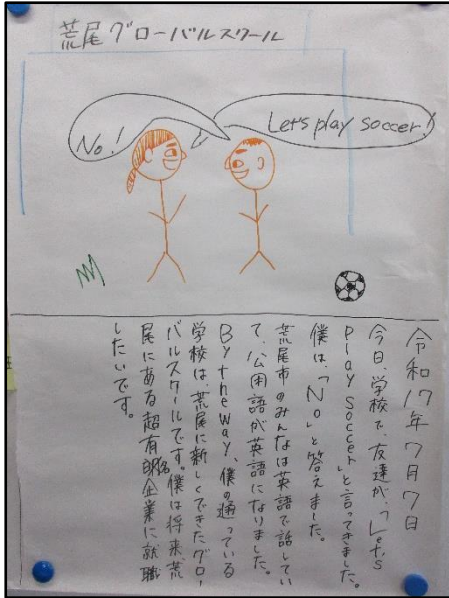 荒尾グローバルスクール
No!
Let's play soccer!
令和17年7月7日
今日、学校で、友達が、「Let's
Play soccer」と言ってきました。
僕は、「No」と答えました。
荒尾市のみんなは英語で話してい
て、公用語が英語になりました。
By the way, 僕の通っている
学校は、荒尾に新しくできたグロー
バルスクールです。僕は将来、荒
尾にある超有名企業に就職
したいです。